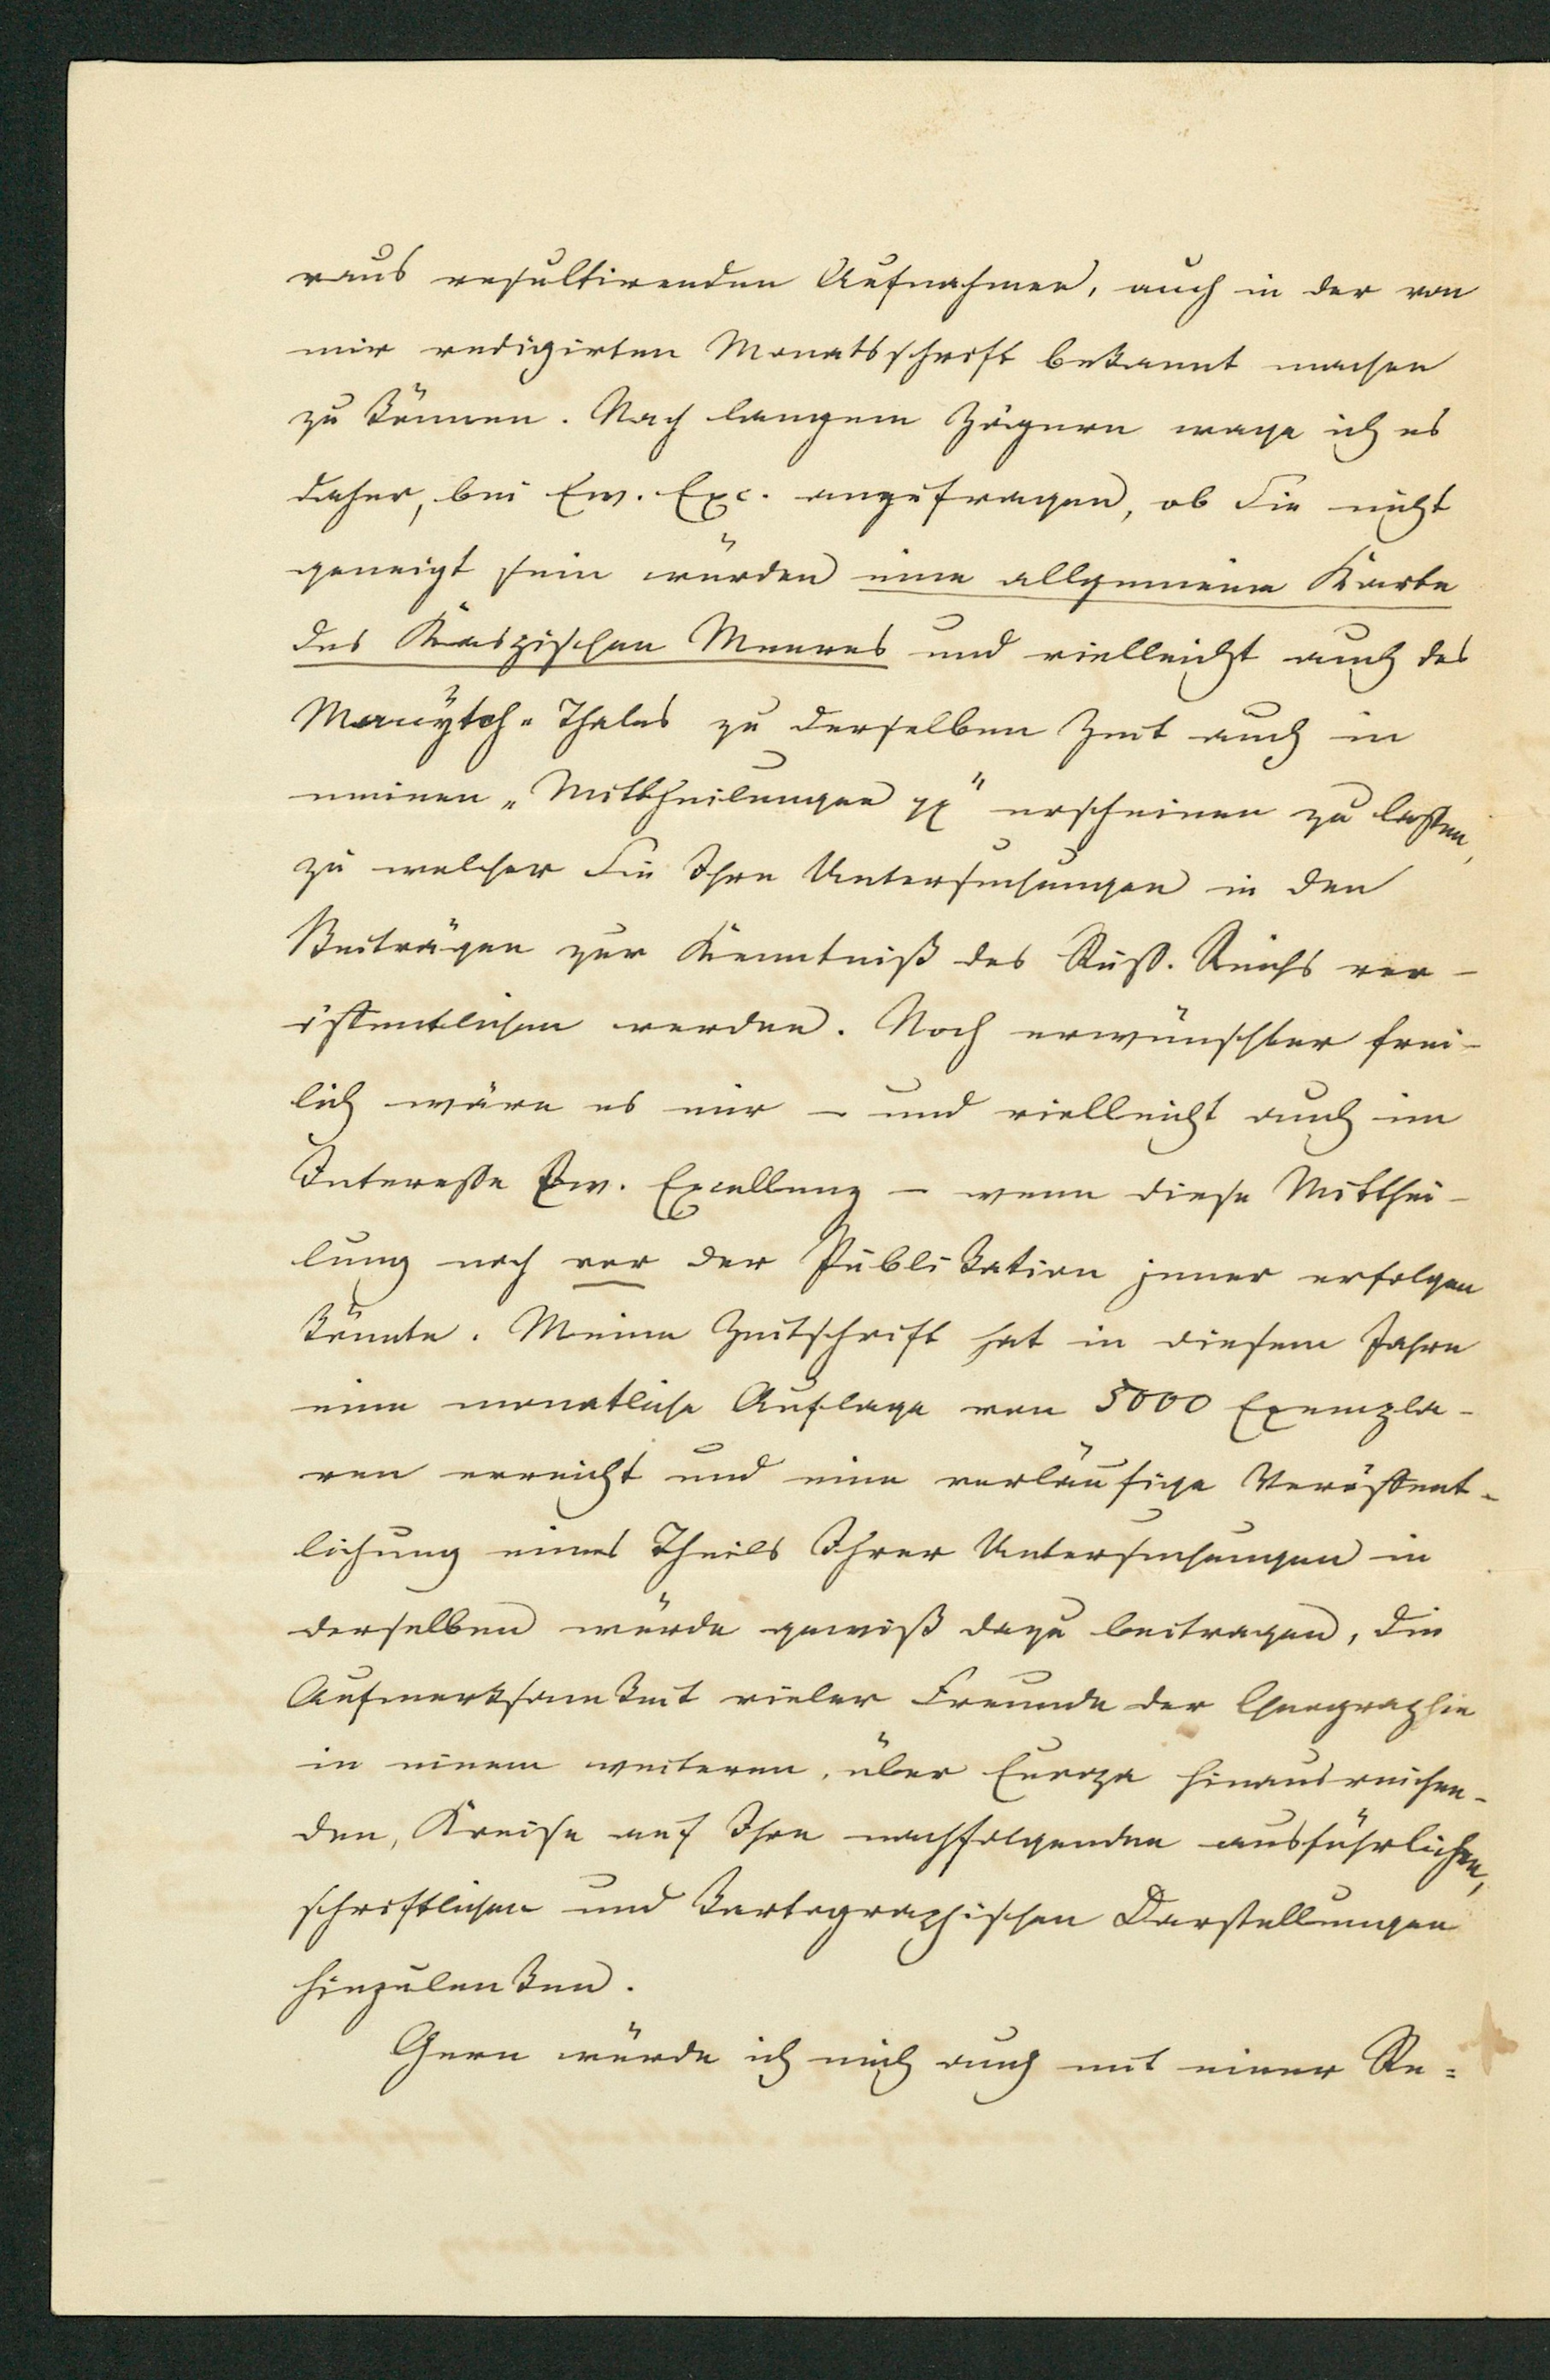 raus resultirenden Aufnahmen, auch in der von
mir redigirten Monatsschrift bekannt machen
zu können. Nach langem Zögern wage ich es
daher, bei Ew. Exc. anzufragen, ob Sie nicht
geneigt sein würden eine allgemeine Karte
des Kaspischen Meeres und vielleicht auch des
Manytch-Thales zu derselben Zeit auch in
meinen „Mittheilungen" erscheinen zu lassen,
zu welcher Sie Ihre Untersuchungen in den
Beiträgen zur Kenntniß des Russ. Reichs ver-
öffentlichen werden. Noch erwünschter frei-
lich wäre es mir – und vielleicht auch im
Interesse Ew. Excellenz – wenn diese Mitthei-
lung noch vor der Publikation jener erfolgen
könnte. Meine Zeitschrift hat in diesem Jahre
eine monatliche Auflage von 5000 Exempla-
ren erreicht und eine vorläufige Veröffent-
lichung eines Theils Ihrer Untersuchungen in
derselben würde gewiß dazu beitragen, die
Aufmerksamkeit vieler Freunde der Geographie
in einem weiteren, über Europa hinausreichen-
den, Kreise auf Ihre nachfolgenden ausführlichen,
schriftlichen und kartographischen Darstellungen
hinzulenken.
Gern würde ich mich auch mit einer Re-